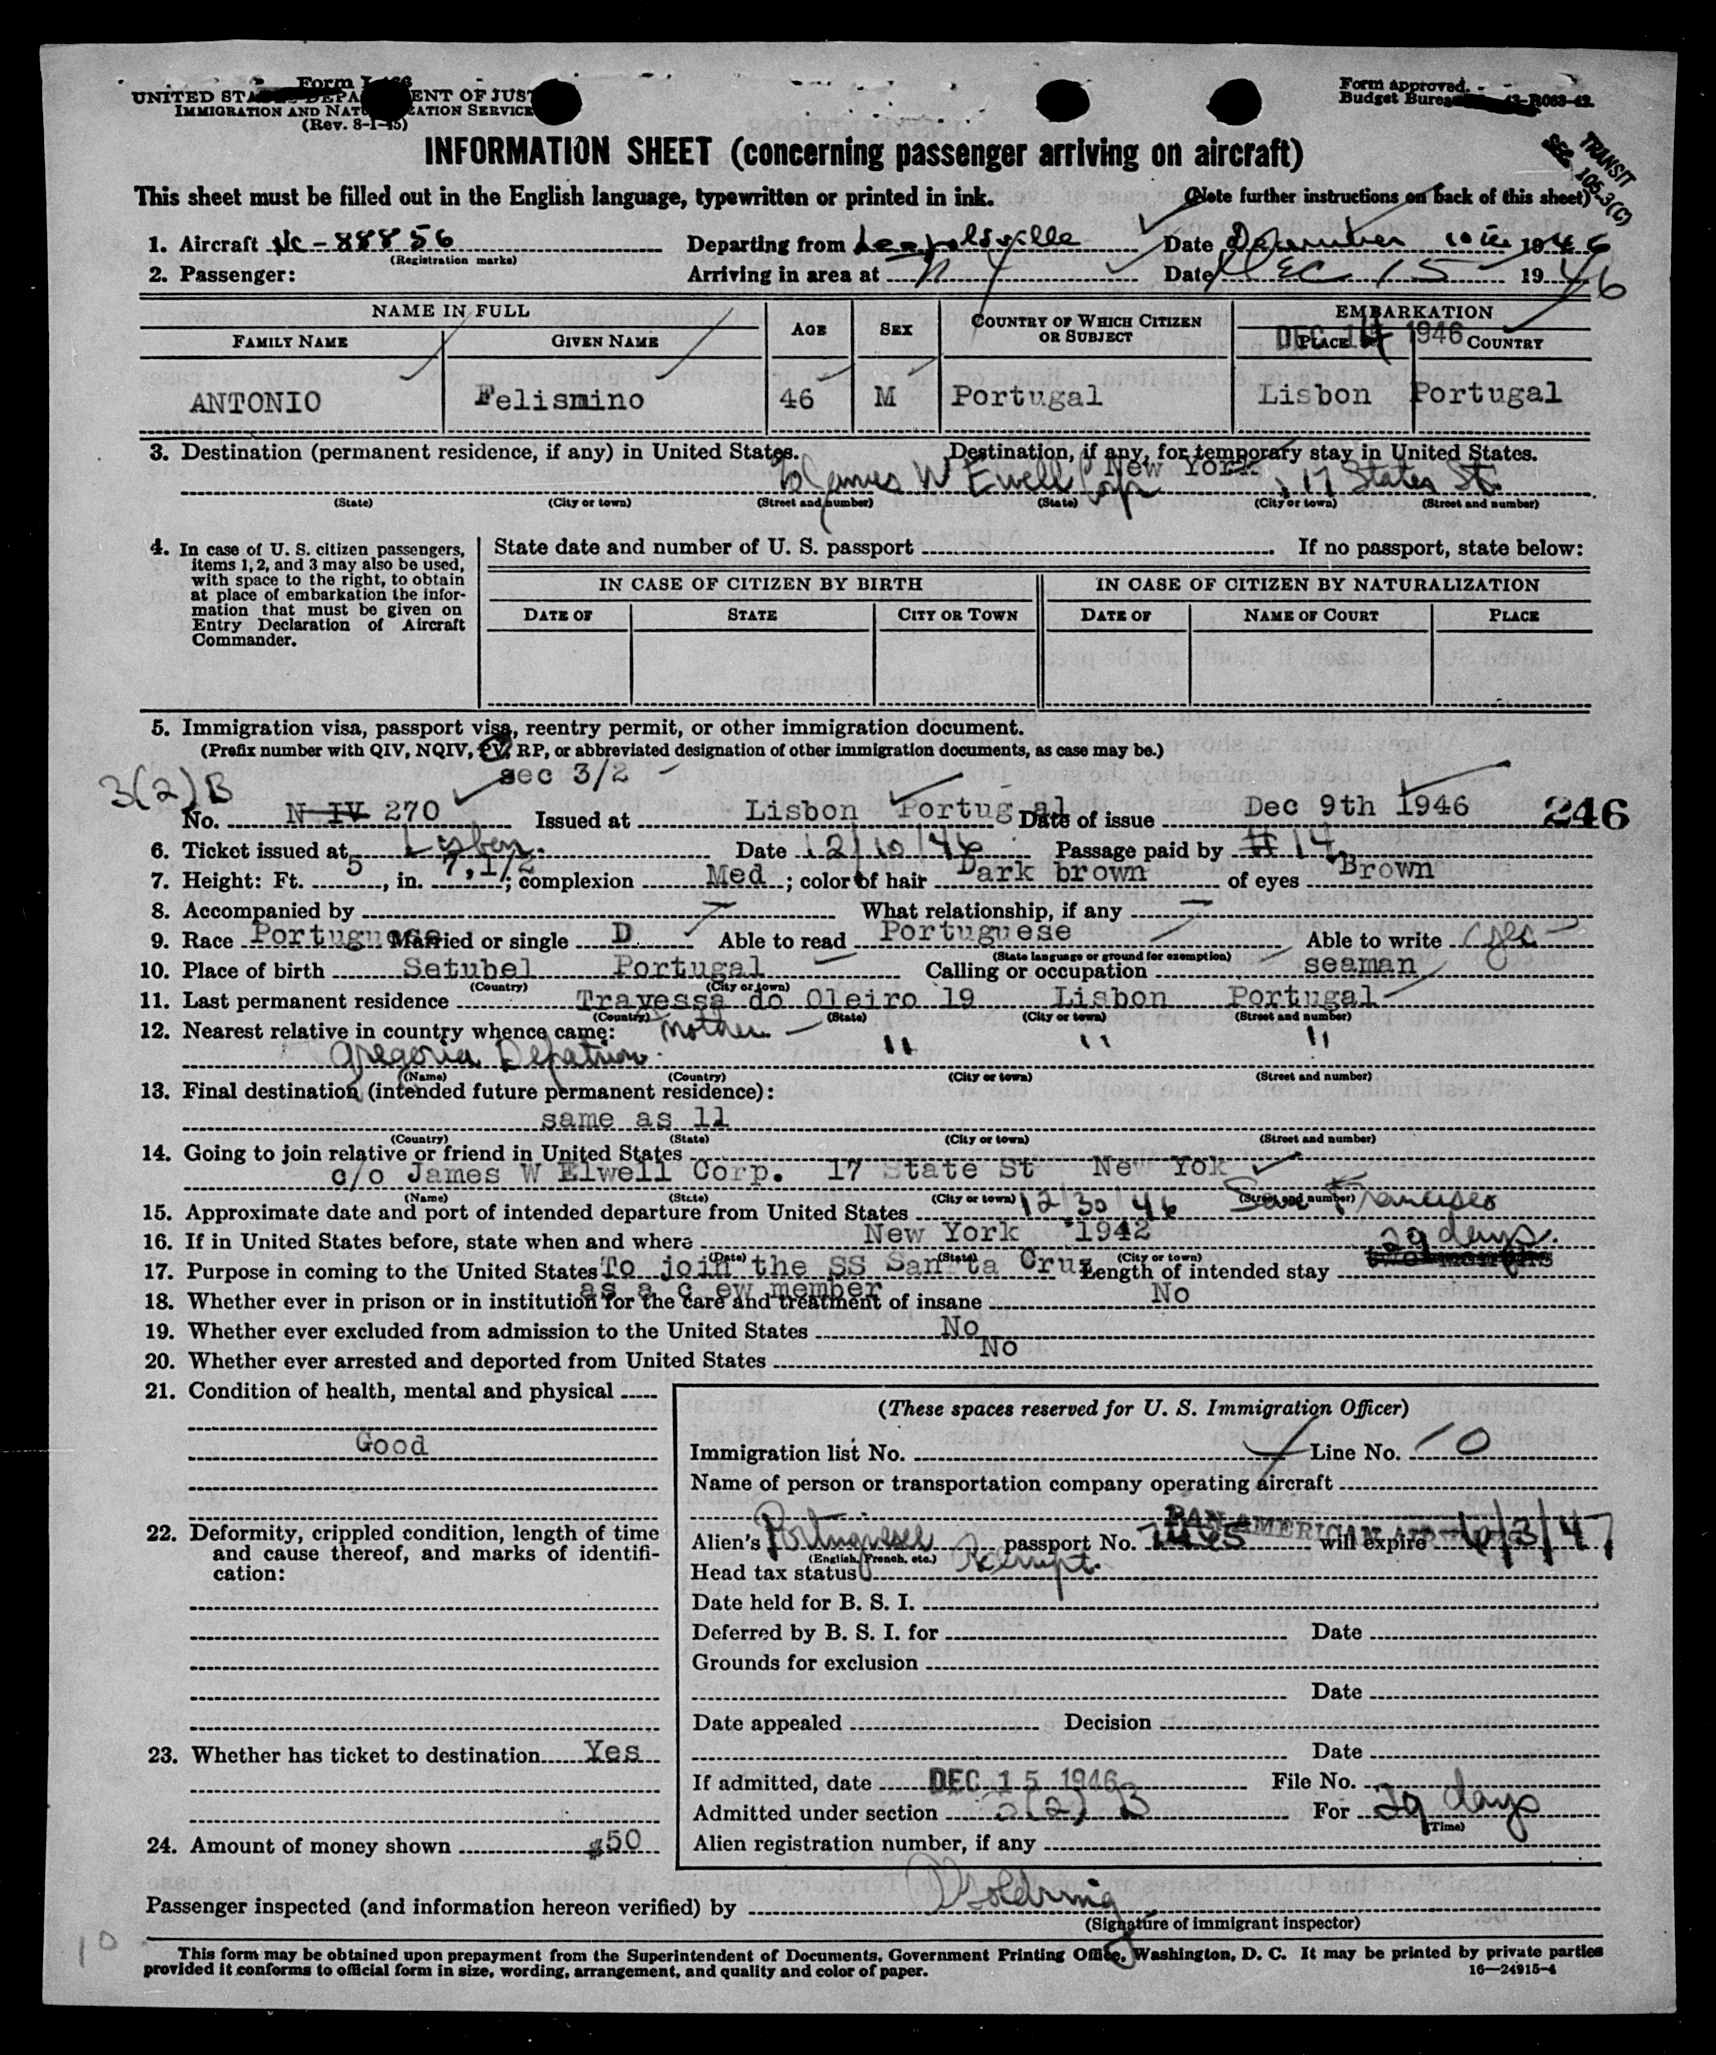 Form I-466
UNITED STATES DEPARTMENT OF JUSTICE
IMMIGRATION AND NATURALIZATION SERVICE
(Rev. 8-1-45)
Form approved.
Budget Bureau 43-R063-42.
TRANSIT
SEC 105-3(C)
INFORMATION SHEET (concerning passenger arriving on aircraft)
This sheet must be filled out in the English language, typewritten or printed in ink. (Note further instructions on back of this sheet)
1. Aircraft NC-88856 Departing from Leopoldville Date December 1946
(Registration marks)
2. Passenger: Arriving in area at N Y Date Dec 15 1946
NAME IN FULL AGE SEX COUNTRY OF WHICH CITIZEN OR SUBJECT EMBARKATION
FAMILY NAME GIVEN NAME PLACE COUNTRY
DEC 14 1946
ANTONIO Felismino 46 M Portugal Lisbon Portugal
3. Destination (permanent residence, if any) in United States. Destination, if any, for temporary stay in United States.
New York
James W Ewell Corp 17 States St.
(State) (City or town) (Street and number) (State) (City or town) (Street and number)
4. In case of U. S. citizen passengers, items 1, 2, and 3 may also be used, with space to the right, to obtain at place of embarkation the information that must be given on Entry Declaration of Aircraft Commander.
State date and number of U. S. passport If no passport, state below:
IN CASE OF CITIZEN BY BIRTH IN CASE OF CITIZEN BY NATURALIZATION
DATE OF STATE CITY OR TOWN DATE OF NAME OF COURT PLACE
5. Immigration visa, passport visa, reentry permit, or other immigration document.
(Prefix number with QIV, NQIV, PV, RP, or abbreviated designation of other immigration documents, as case may be.)
3(2)B sec 3/2
No. N IV 270 Issued at Lisbon Portugal Date of issue Dec 9th 1946 246
6. Ticket issued at Lisbon. Date 12/10/46 Passage paid by # 14
7. Height: Ft. 5, in. 7,1/2; complexion Med; color of hair Dark brown of eyes Brown
8. Accompanied by What relationship, if any
9. Race Portuguese Married or single D Able to read Portuguese Able to write yes
(State language or ground for exemption)
10. Place of birth Setubel Portugal Calling or occupation seaman
(Country) (City or town)
11. Last permanent residence Travessa do Oleiro 19 Lisbon Portugal
(Country) (State) (City or town) (Street and number)
12. Nearest relative in country whence came: mother
Gregoria " " "
(Name) (Country) (City or town) (Street and number)
13. Final destination (intended future permanent residence):
same as 11
(Country) (State) (City or town) (Street and number)
14. Going to join relative or friend in United States
c/o James W Elwell Corp. 17 State St New Yok
(Name) (State) (City or town) (Street and number)
15. Approximate date and port of intended departure from United States 12/30/46 San Francisco
16. If in United States before, state when and where New York 1942
(Date) (State) (City or town)
29 days.
17. Purpose in coming to the United States To join the SS Santa Cruz Length of intended stay
as a c ew member
18. Whether ever in prison or in institution for the care and treatment of insane No
19. Whether ever excluded from admission to the United States No
20. Whether ever arrested and deported from United States No
21. Condition of health, mental and physical
Good
22. Deformity, crippled condition, length of time and cause thereof, and marks of identification:
23. Whether has ticket to destination Yes
24. Amount of money shown $50
(These spaces reserved for U. S. Immigration Officer)
Immigration list No. Line No. 10
Name of person or transportation company operating aircraft
PAN AMERICAN
Alien's Portuguese passport No. will expire 6/3/47
(English, French, etc.)
Head tax status Exempt.
Date held for B. S. I.
Deferred by B. S. I. for Date
Grounds for exclusion
Date
Date appealed Decision
Date
If admitted, date DEC 15 1946 File No.
Admitted under section 3(2) B For 29 days
(Time)
Alien registration number, if any
Passenger inspected (and information hereon verified) by Goldring
(Signature of immigrant inspector)
10
This form may be obtained upon prepayment from the Superintendent of Documents, Government Printing Office, Washington, D. C. It may be printed by private parties
provided it conforms to official form in size, wording, arrangement, and quality and color of paper.
16—24915-4